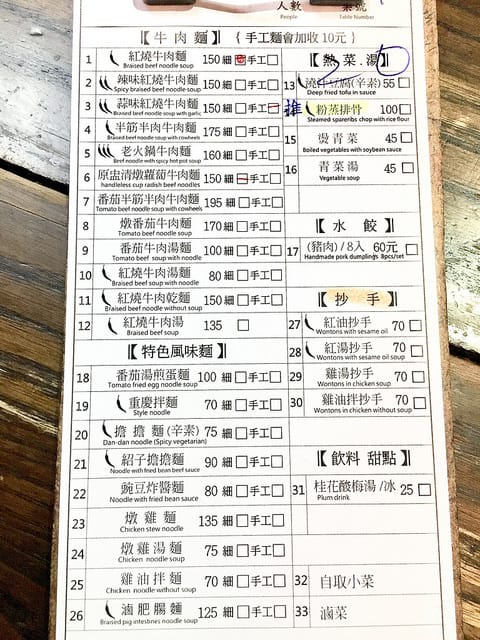 人數
桌號
People
Table Number
【牛肉麵】 { 手工麵會加收 10元 }
1 紅燒牛肉麵 150 細 □手工□
Braised beef noodle soup
2 辣味紅燒牛肉麵 150 細□手工□
Spicy braised beef noodle soup
3 蒜味紅燒牛肉麵 150 細□手工
Braised beef noodle soup with garlic
4 半筋半肉牛肉麵 175 細□手工□
Braised beef noodle soup with cowheels
5 老火鍋牛肉麵 160 細□手工□
Beef noodle with spicy hot pot soup
6 原盅清燉蘿蔔牛肉麵 150 細 手工□
handleless cup radish beef noodles
7 番茄半筋半肉牛肉麵 195 細□手工□
Tomato beef noodle soup with cowheels
8 燉番茄牛肉麵 170 細□手工□
Tomato beef noodle soup
9 番茄牛肉湯麵 100 細□手工□
Tomato beef soup with noodle
10 紅燒牛肉湯麵 80 細□手工□
Braised beef soup with noodle
11 紅燒牛肉乾麵 150 細□手工□
Braised beef noodle without soup
12 紅燒牛肉湯 135 □
Braised beef soup
【特色風味麵】
18 番茄湯煎蛋麵 100 細□手工□
Tomato fried egg noodle soup
19 重慶拌麵 70 細□手工□
Style noodle
20 擔擔麵(辛素) 75 細□手工□
Dan-dan noodle (Spicy vegetarian)
21 紹子擔擔麵 90 細□手工□
Noodle with fried bean beef sauce
22 豌豆炸醬麵 80 細□手工□
Noodle with fried bean sauce
23 燉雞麵 135 細□手工□
Chicken stew noodle
24 燉雞湯麵 75 細□手工□
Chicken noodle soup
25 雞油拌麵 70 細□手工□
Chicken noodle without soup
26 滷肥腸麵 125 細□手工□
Braised pig intestines noodle soup
【熱菜.湯】
13 澆汁豆腐(辛素) 55□
Deep fried tofu in sauce
推 粉蒸排骨 100□
Steamed spareribs chop with rice flour
15 燙青菜 45□
Boiled vegetables with soybean sauce
16 青菜湯 45□
Vegetable soup
【水餃】
17 (豬肉) / 8入 60元□
Handmade pork dumplings 8pcs/set
【抄手】
27 紅油抄手 70□
Wontons with sesame oil
28 紅湯抄手 70□
Wontons with sesame oil soup
29 雞湯抄手 70□
Wontons in chicken soup
30 雞油拌抄手 70□
Wontons in chicken without soup
【飲料 甜點】
31 桂花酸梅湯 /冰 25□
Plum drink
32 自取小菜
33 滷菜